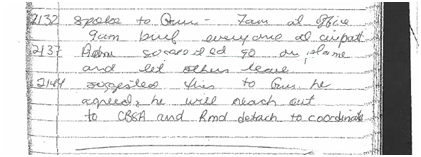 2132 spoke to Gun - 7am at office
9am brief everyone at airport
2137 Adm so go on plane
and let others leave
2144 suggested this to Gun he
agreed, he will reach out
to CBSA and Rmd detach to coordinate